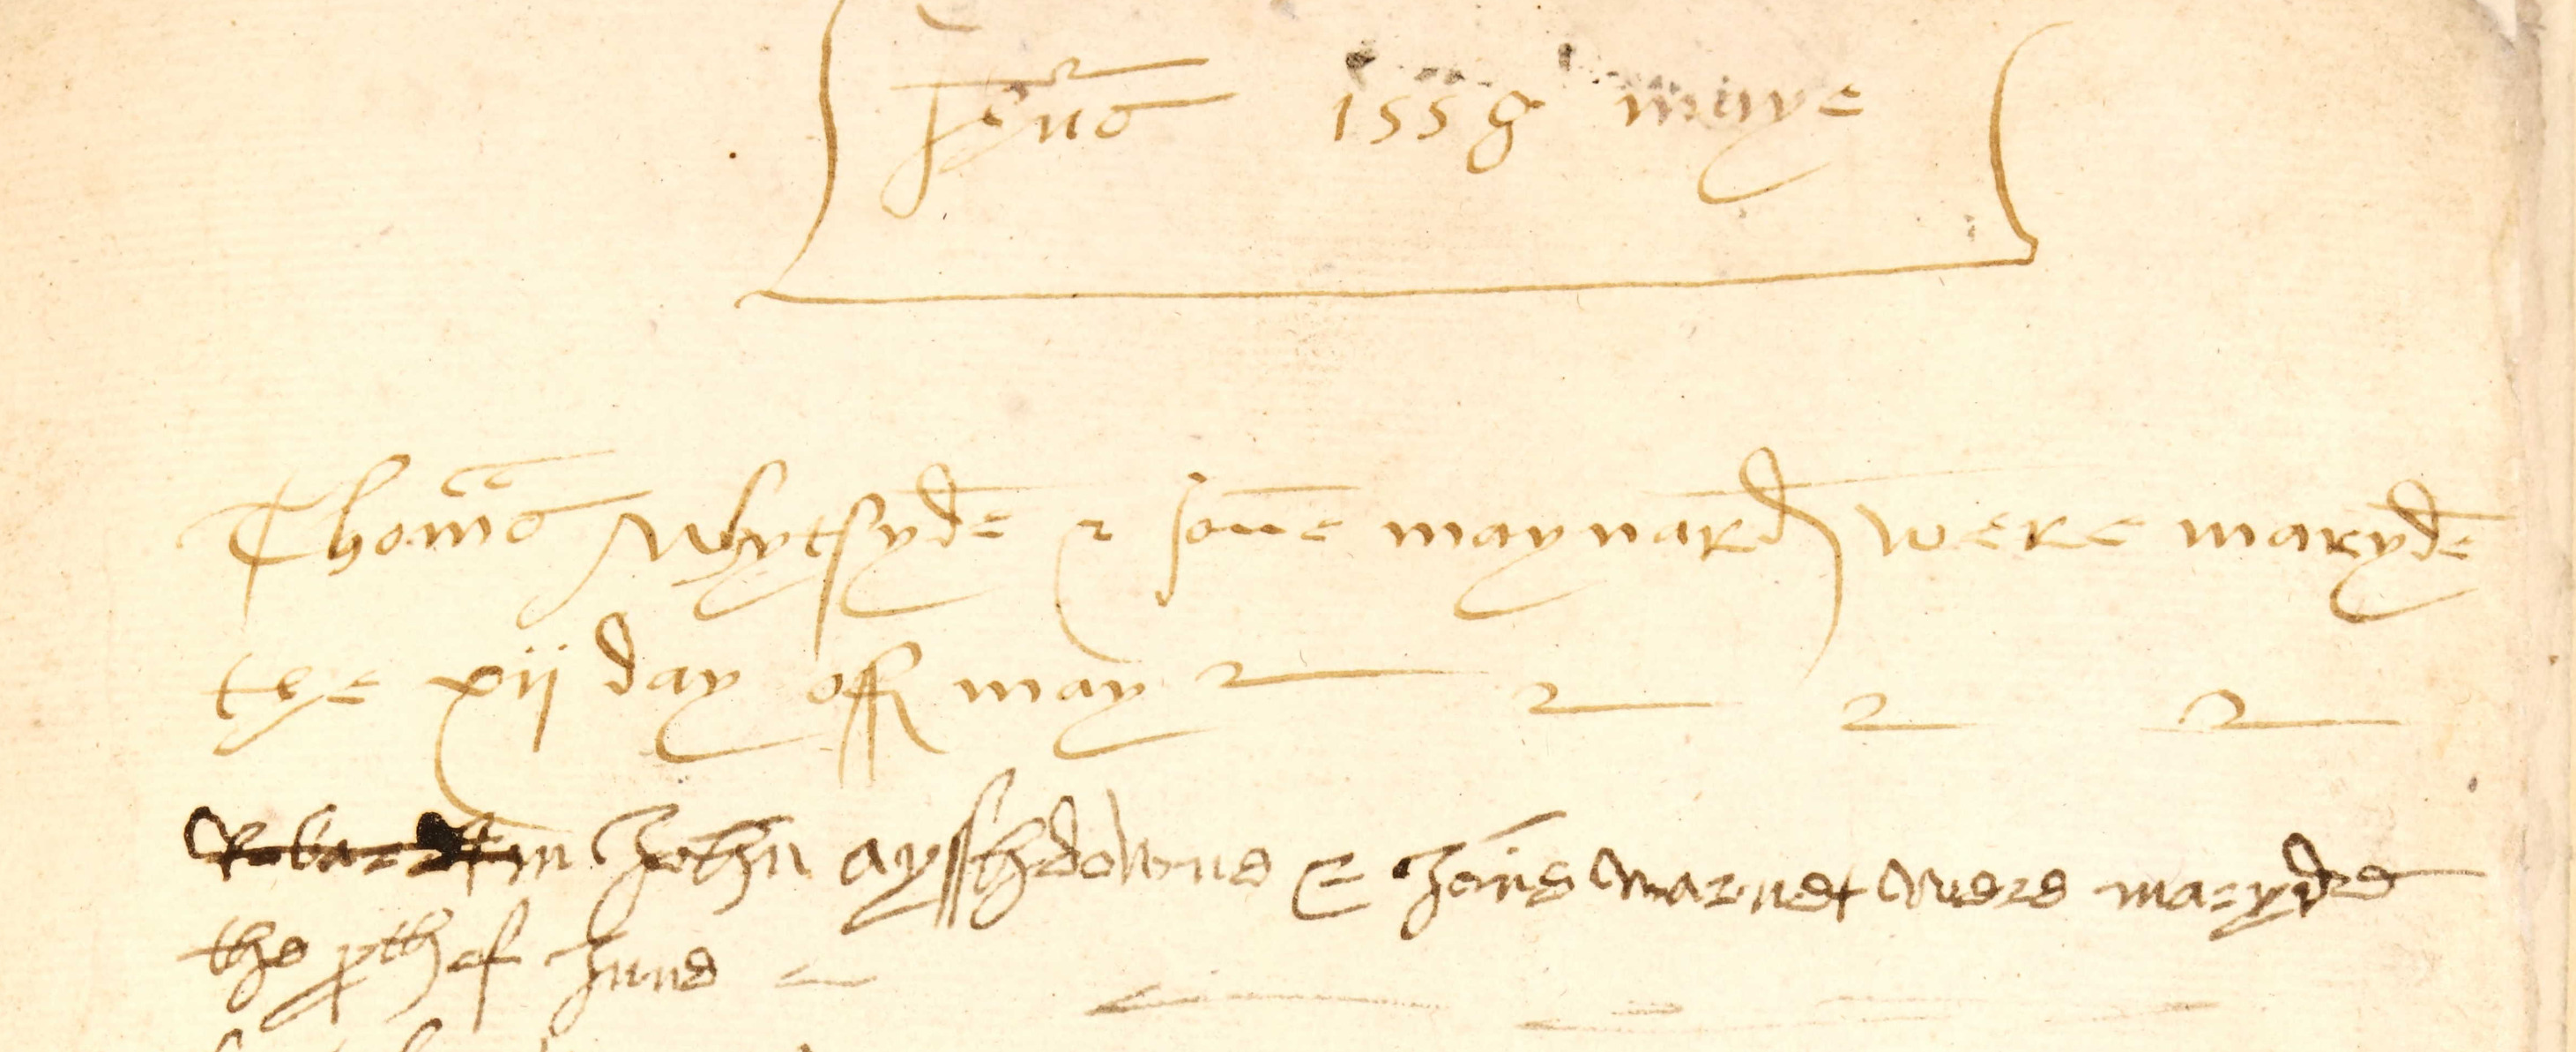 1558 maye
Thomas Whytsyde & Jone maynard were maryde
the xij day off may
John aysshdowne & Jone warnet were maryde
the xth of June